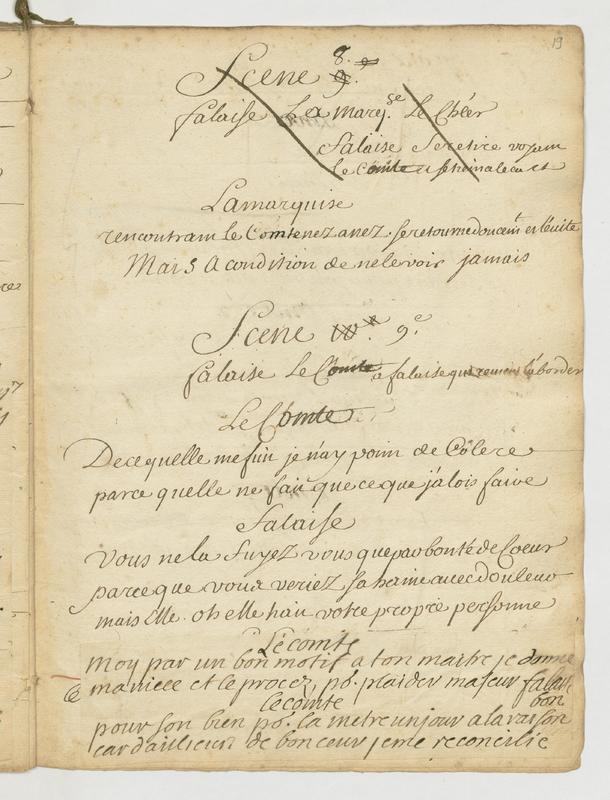 19
Scene 8.e
falaise La marq.se Le Ch.er
falaise se retire voyant
le Comte
La marquise
rencontrant le Comte nez a nez. se retourne doucem.t et l'evite
Mais a condition de ne le voir jamais
Scene 9.e
falaise Le Comte a falaise qui
Le Comte
De ce quelle me fuit je n'ay point de Colere
parce quelle ne fait que ce que j'alois faire
Falaise
Vous ne la fuyez vous que par bonté de Coeur
parce que vous veriez sa haine avec douleur
mais Elle. oh elle hait votre propre personne
Le comte
Moy par un bon motif a ton maitre je donne
maniere et le procez, po.r plaider ma seur falaise
le comte bon
pour son bien po.r la metre un jour a la raison
car d'ailieurs de bon ceur je me reconcilie